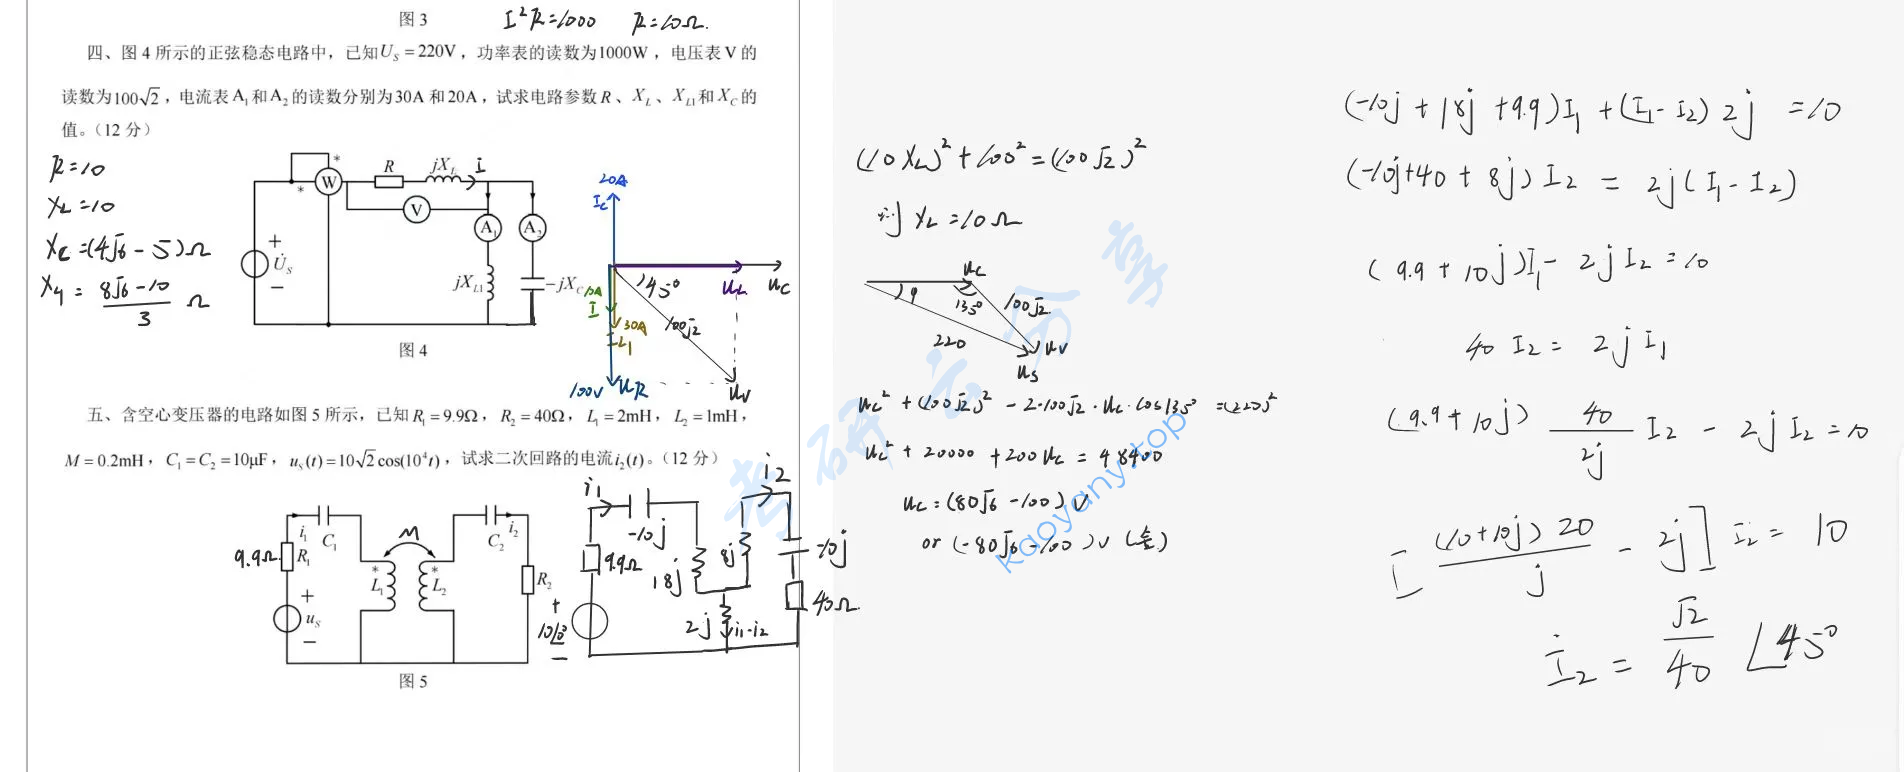 图 3
I²R=1000 R=10Ω.
四、图 4 所示的正弦稳态电路中，已知U_S = 220V，功率表的读数为1000W，电压表 V 的
读数为100√2，电流表 A₁和 A₂ 的读数分别为30A 和 20A，试求电路参数 R、X_L、X_L1和 X_C 的
值。（12 分）
R=10
X_L=10
X_C=(4√6-5)Ω
X_L1= (8√6-10)/3 Ω
*
*
W
R
jX_L
İ
V
A₁
A₂
+
U̇_S
−
jX_L1
-jX_C
图 4
20A
I_C
45°
U_L
U_C
10A
I
30A
I_L1
100√2
100V
U_R
U_V
五、含空心变压器的电路如图 5 所示，已知 R₁ = 9.9Ω，R₂ = 40Ω，L₁ = 2mH，L₂ = 1mH，
M = 0.2mH，C₁ = C₂ = 10μF，u_S(t) = 10√2 cos(10⁴t)，试求二次回路的电流 i₂(t)。（12 分）
i₁
C₁
M
C₂
i₂
9.9Ω
R₁
*
L₁
*
L₂
R₂
+
u_S
−
图 5
i₁
-10j
i₂
9.9Ω
18j
8j
-10j
40Ω
2j
i₁-i₂
+
10∠0°
−
(10X_L)²+100²=(100√2)²
则 X_L=10Ω
U_C
φ
135°
100√2
220
U_V
U_S
U_C²+(100√2)²-2·100√2·U_C·cos135°=(220)²
U_C²+20000+200U_C=48400
U_C=(80√6-100)V
or (-80√6-100)V (舍)
(-10j+18j+9.9)I₁+(I₁-I₂)2j=10
(-10j+40+8j)I₂=2j(I₁-I₂)
(9.9+10j)I₁-2jI₂=10
40I₂=2jI₁
(9.9+10j) 40/2j I₂-2jI₂=10
[(10+10j)20/j-2j]I₂=10
İ₂=√2/40∠45°
考研云分享
kaoyany.top